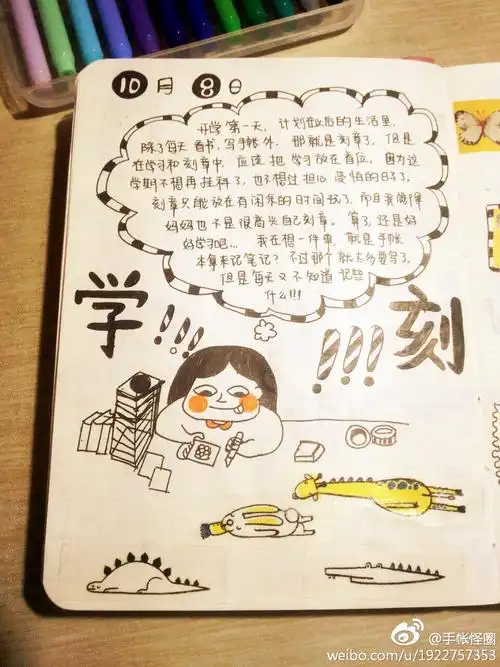 10月8日
开学第一天,计划在以后的生活里,
除了每天看书,写手帐外,那就是刻章了,但是
在学习和刻章中,应该把学习放在首位,因为这
学期不想再挂科了,也不想过担心受怕的日子了。
刻章只能放在有闲余的时间玩了,而且我觉得
妈妈也不是很高兴自己刻章。算了还是好
好学习吧... 我在想一件事,就是手帐
本拿来记笔记?不过那个就太多要写了,
但是每天又不知道记些
什么!!!
学!!!
!!!刻
@手帐怪圈
weibo.com/u/1922757353